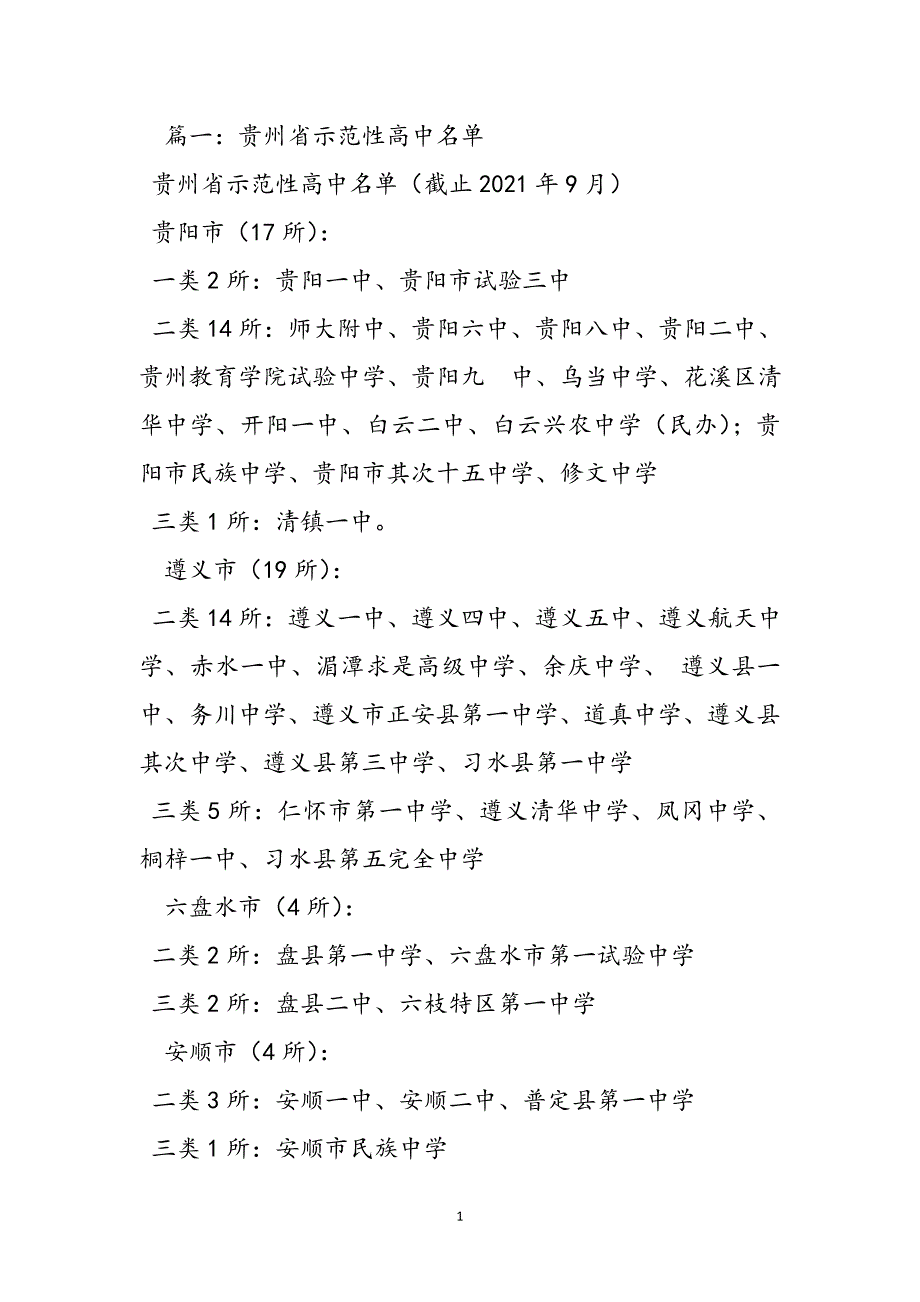 篇一：贵州省示范性高中名单
贵州省示范性高中名单（截止 2021 年 9 月）
贵阳市（17 所）：
一类 2 所：贵阳一中、贵阳市试验三中
二类 14 所：师大附中、贵阳六中、贵阳八中、贵阳二中、
贵州教育学院试验中学、贵阳九　中、乌当中学、花溪区清
华中学、开阳一中、白云二中、白云兴农中学（民办）；贵
阳市民族中学、贵阳市其次十五中学、修文中学
三类 1 所：清镇一中。
遵义市（19 所）：
二类 14 所：遵义一中、遵义四中、遵义五中、遵义航天中
学、赤水一中、湄潭求是高级中学、余庆中学、 遵义县一
中、务川中学、遵义市正安县第一中学、道真中学、遵义县
其次中学、遵义县第三中学、习水县第一中学
三类 5 所：仁怀市第一中学、遵义清华中学、凤冈中学、
桐梓一中、习水县第五完全中学
六盘水市（4 所）：
二类 2 所：盘县第一中学、六盘水市第一试验中学
三类 2 所：盘县二中、六枝特区第一中学
安顺市（4 所）：
二类 3 所：安顺一中、安顺二中、普定县第一中学
三类 1 所：安顺市民族中学
1